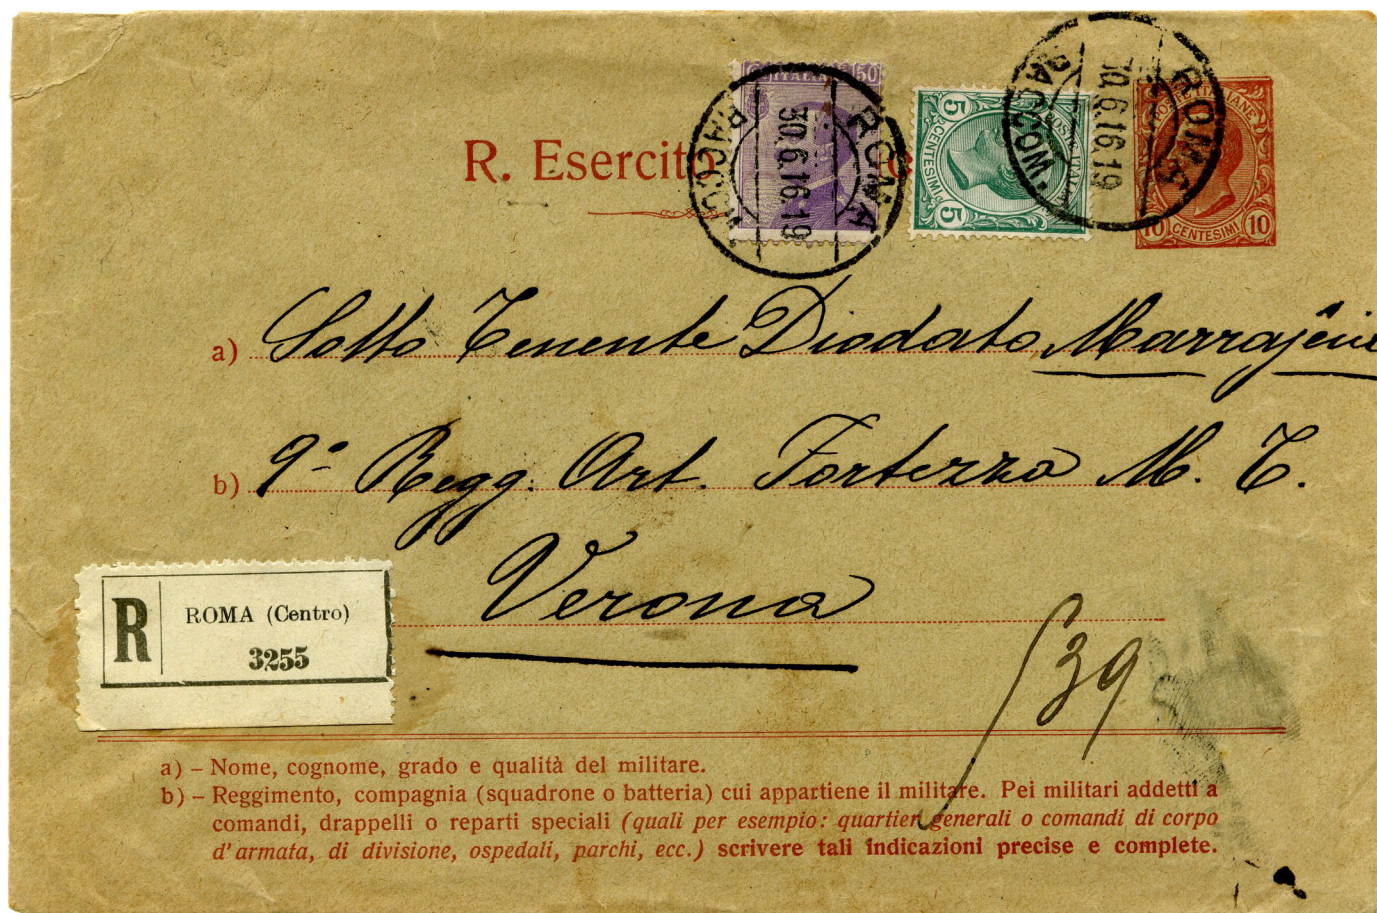 ITALIA 50
ROMA
RACCOM
30.6.16.19
5 5
CENTESIMI
ROMA
RACCOM.
30.6.16.19
POSTE ITALIANE
10 CENTESIMI 10
R. Esercito
a) Sotto Tenente Diodato
b) 9º Regg. Art. Fortezza M. T.
Verona
R ROMA (Centro)
3255
39
a) – Nome, cognome, grado e qualità del militare.
b) – Reggimento, compagnia (squadrone o batteria) cui appartiene il militare. Pei militari addetti a
comandi, drappelli o reparti speciali (quali per esempio: quartieri generali o comandi di corpo
d'armata, di divisione, ospedali, parchi, ecc.) scrivere tali indicazioni precise e complete.